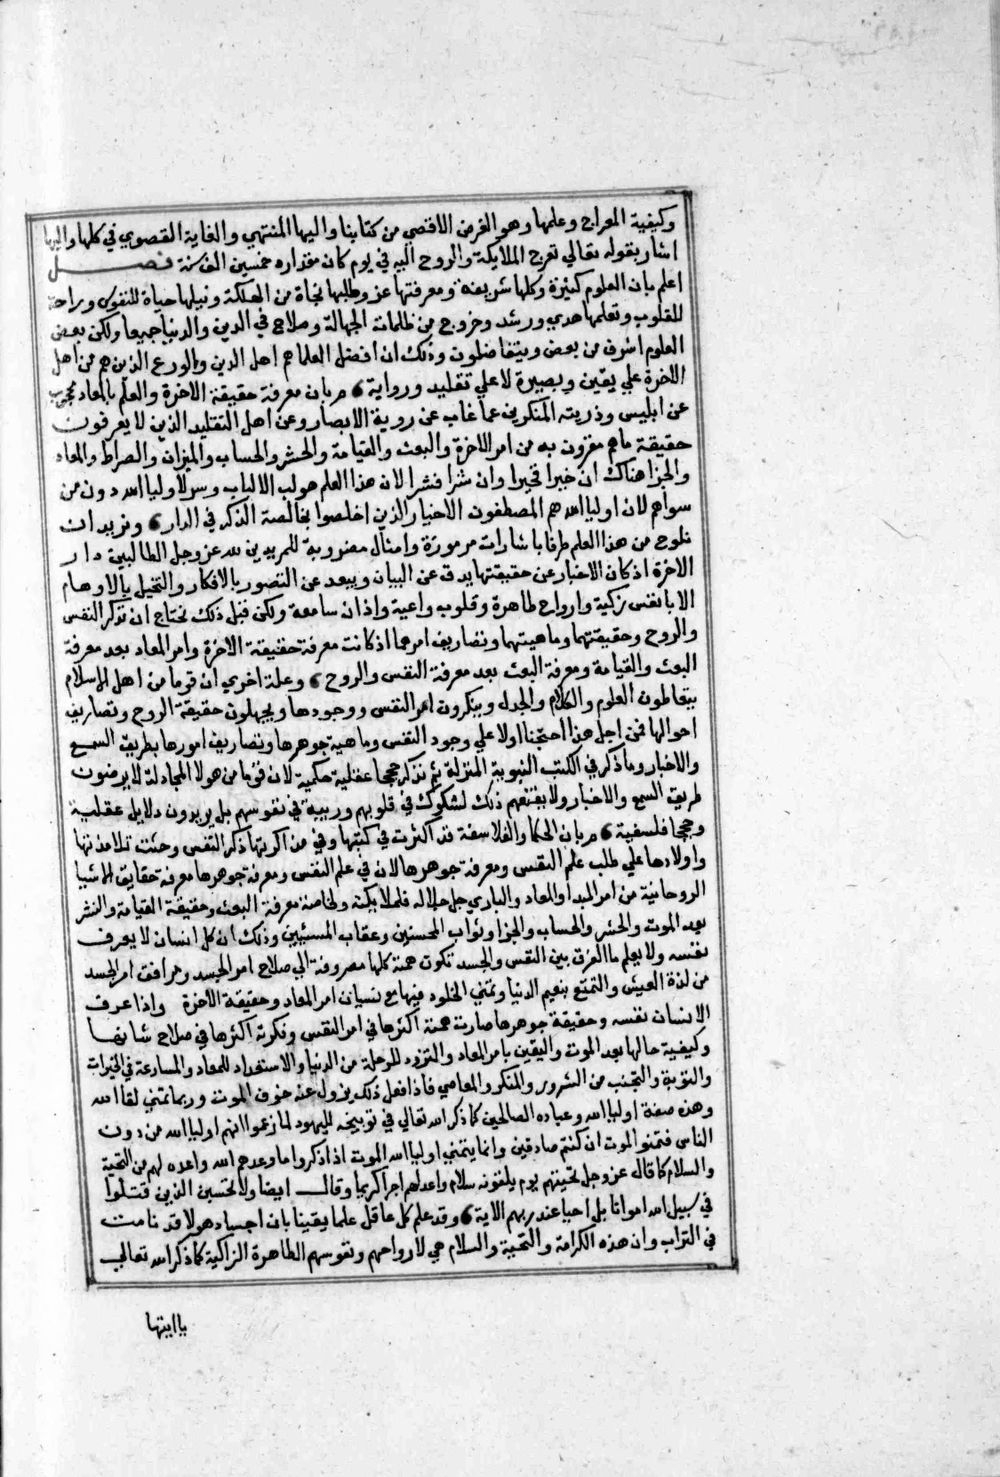 وكيفية المعراج وعلمها وهو الغرض الاقصي من كتابنا واليها المنتهي والغاية القصوي في كلها واليها
اشار بقوله تعالي تعرج الملايكة والروح اليه في يوم كان مقداره خمسين الف سنة فصل
اعلم بان العلوم كثيرة وكلها شريفة ومعرفتها عز وطلبها نجاة من الهلكة ونيلها حياة للنفوس وراحة
للقلوب وتعلمها هدي ورشد وخروج من ظلمات الجهالة وصلاح في الدين والدنيا جميعا ولكن بعض
العلوم اشرف من بعض ويتفاضلون وذلك ان افضل العلما هم اهل الدين والورع الذين هم من اهل
الاخرة علي يقين وبصيرة لا علي تقليد ورواية مر بان معرفة حقيقة الاخرة والعلم بالمعاد محجوب
عن ابليس وذريته المنكرين عما غاب عن روية الابصار وعن اهل التقليد الذين لا يعرفون
حقيقة ما هم مقرون به من امر الاخرة والبعث والقيامة والحشر والحساب والميزان والصراط والمعاد
والجزا هناك ان خيرا فخيرا وان شرا فشرا لان هذا العلم هو لب الالباب وسر لاوليا الله دون من
سواهم لان اوليا الله هم المصطفون الاخيار الذين اخلصوا بخالصة الذكر في الدار ونريد ان
نلوح من هذا العلم طرفا باشارات مرموزة وامثال مضروبة للمريدين لله عز وجل الطالبين دار
الاخرة اذ كان الاخبار عن حقيقتها يدق عن البيان ويبعد عن التصور بالافكار والتخيل بالاوهام
الا بانفس زكية وارواح طاهرة وقلوب واعية واذان سامعة ولكن قبل ذلك نحتاج ان نذكر النفس
والروح وحقيقتهما وماهيتهما وتصاريف امرهما اذ كانت معرفة حقيقة الاخرة وامر المعاد بعد معرفة
البعث والقيامة ومعرفة البعث بعد معرفة النفس والروح وعلة اخري ان قوما من اهل الاسلام
يتعاطون العلوم والكلام والجدل وينكرون امر النفس ووجودها ويجهلون حقيقة الروح وتصاريف
احوالها فمن اجل هذا احتجنا اولا علي وجود النفس وماهية جوهرها وتصاريف امورها بطريق السمع
والاخبار وما ذكر في الكتب النبوية المنزلة ثم نذكر حججا عقلية حكمية لان قوما من هولا المجادلة لا يرضون
طريق السمع والاخبار ولا يقنعهم ذلك لشكوك في قلوبهم وريبة في نفوسهم بل يريدون دلايل عقلية
وحججا فلسفية مر بان الحكما والفلاسفة قد اكثرت في كتبها وفي مذاكرتها ذكر النفس وحثت تلامذتها
واولادها علي طلب علم النفس ومعرفة جوهرها لان في علم النفس ومعرفة جوهرها معرفة حقايق الاشيا
الروحانية من امر المبدا والمعاد والباري جل جلاله فلملايكته ولخاصة معرفة البعث وحقيقة القيامة والنشر
بعد الموت والحشر والحساب والجزا وثواب المحسنين وعقاب المسيئين وذلك ان كل انسان لا يعرف
نفسه ولا يعلم ما الفرق بين النفس والجسد تكون همته كلها مصروفة الي صلاح امر الجسد ومرافق امر الجسد
من لذة العيش والتمتع بنعيم الدنيا وتمني الخلود فيها مع نسيان امر المعاد وحقيقة الاخرة واذا عرف
الانسان نفسه وحقيقة جوهرها صارت همته اكثرها في امر النفس وفكرته اكثرها في صلاح شانها
وكيفية حالها بعد الموت واليقين بامر المعاد والتزود للرحلة من الدنيا والاستعداد للمعاد والمسارعة في الخيرات
والتوبة والتجنب من الشرور والمنكر والمعاصي فاذا فعل ذلك يزول عنه خوف الموت وربما تمني لقا الله
وهذه صفة اوليا الله وعباده الصالحين كما ذكر الله تعالي في توبيخه لليهود لما زعموا انهم اوليا الله من دون
الناس فتمنوا الموت ان كنتم صادقين وانما يتمني اوليا الله الموت اذا ذكروا ما وعدهم الله واعده لهم من التحية
والسلام كما قال عز وجل تحيتهم يوم يلقونه سلام واعد لهم اجرا كريما وقال ايضا ولا تحسبن الذين قتلوا
في سبيل الله امواتا بل احيا عند ربهم الاية وقد علم كل عاقل علما يقينا بان اجساد هولا قد نامت
في التراب وان هذه الكرامة والتحية والسلام هي لارواحهم ونفوسهم الطاهرة الزاكية كما ذكر الله تعالي
يا ايتها